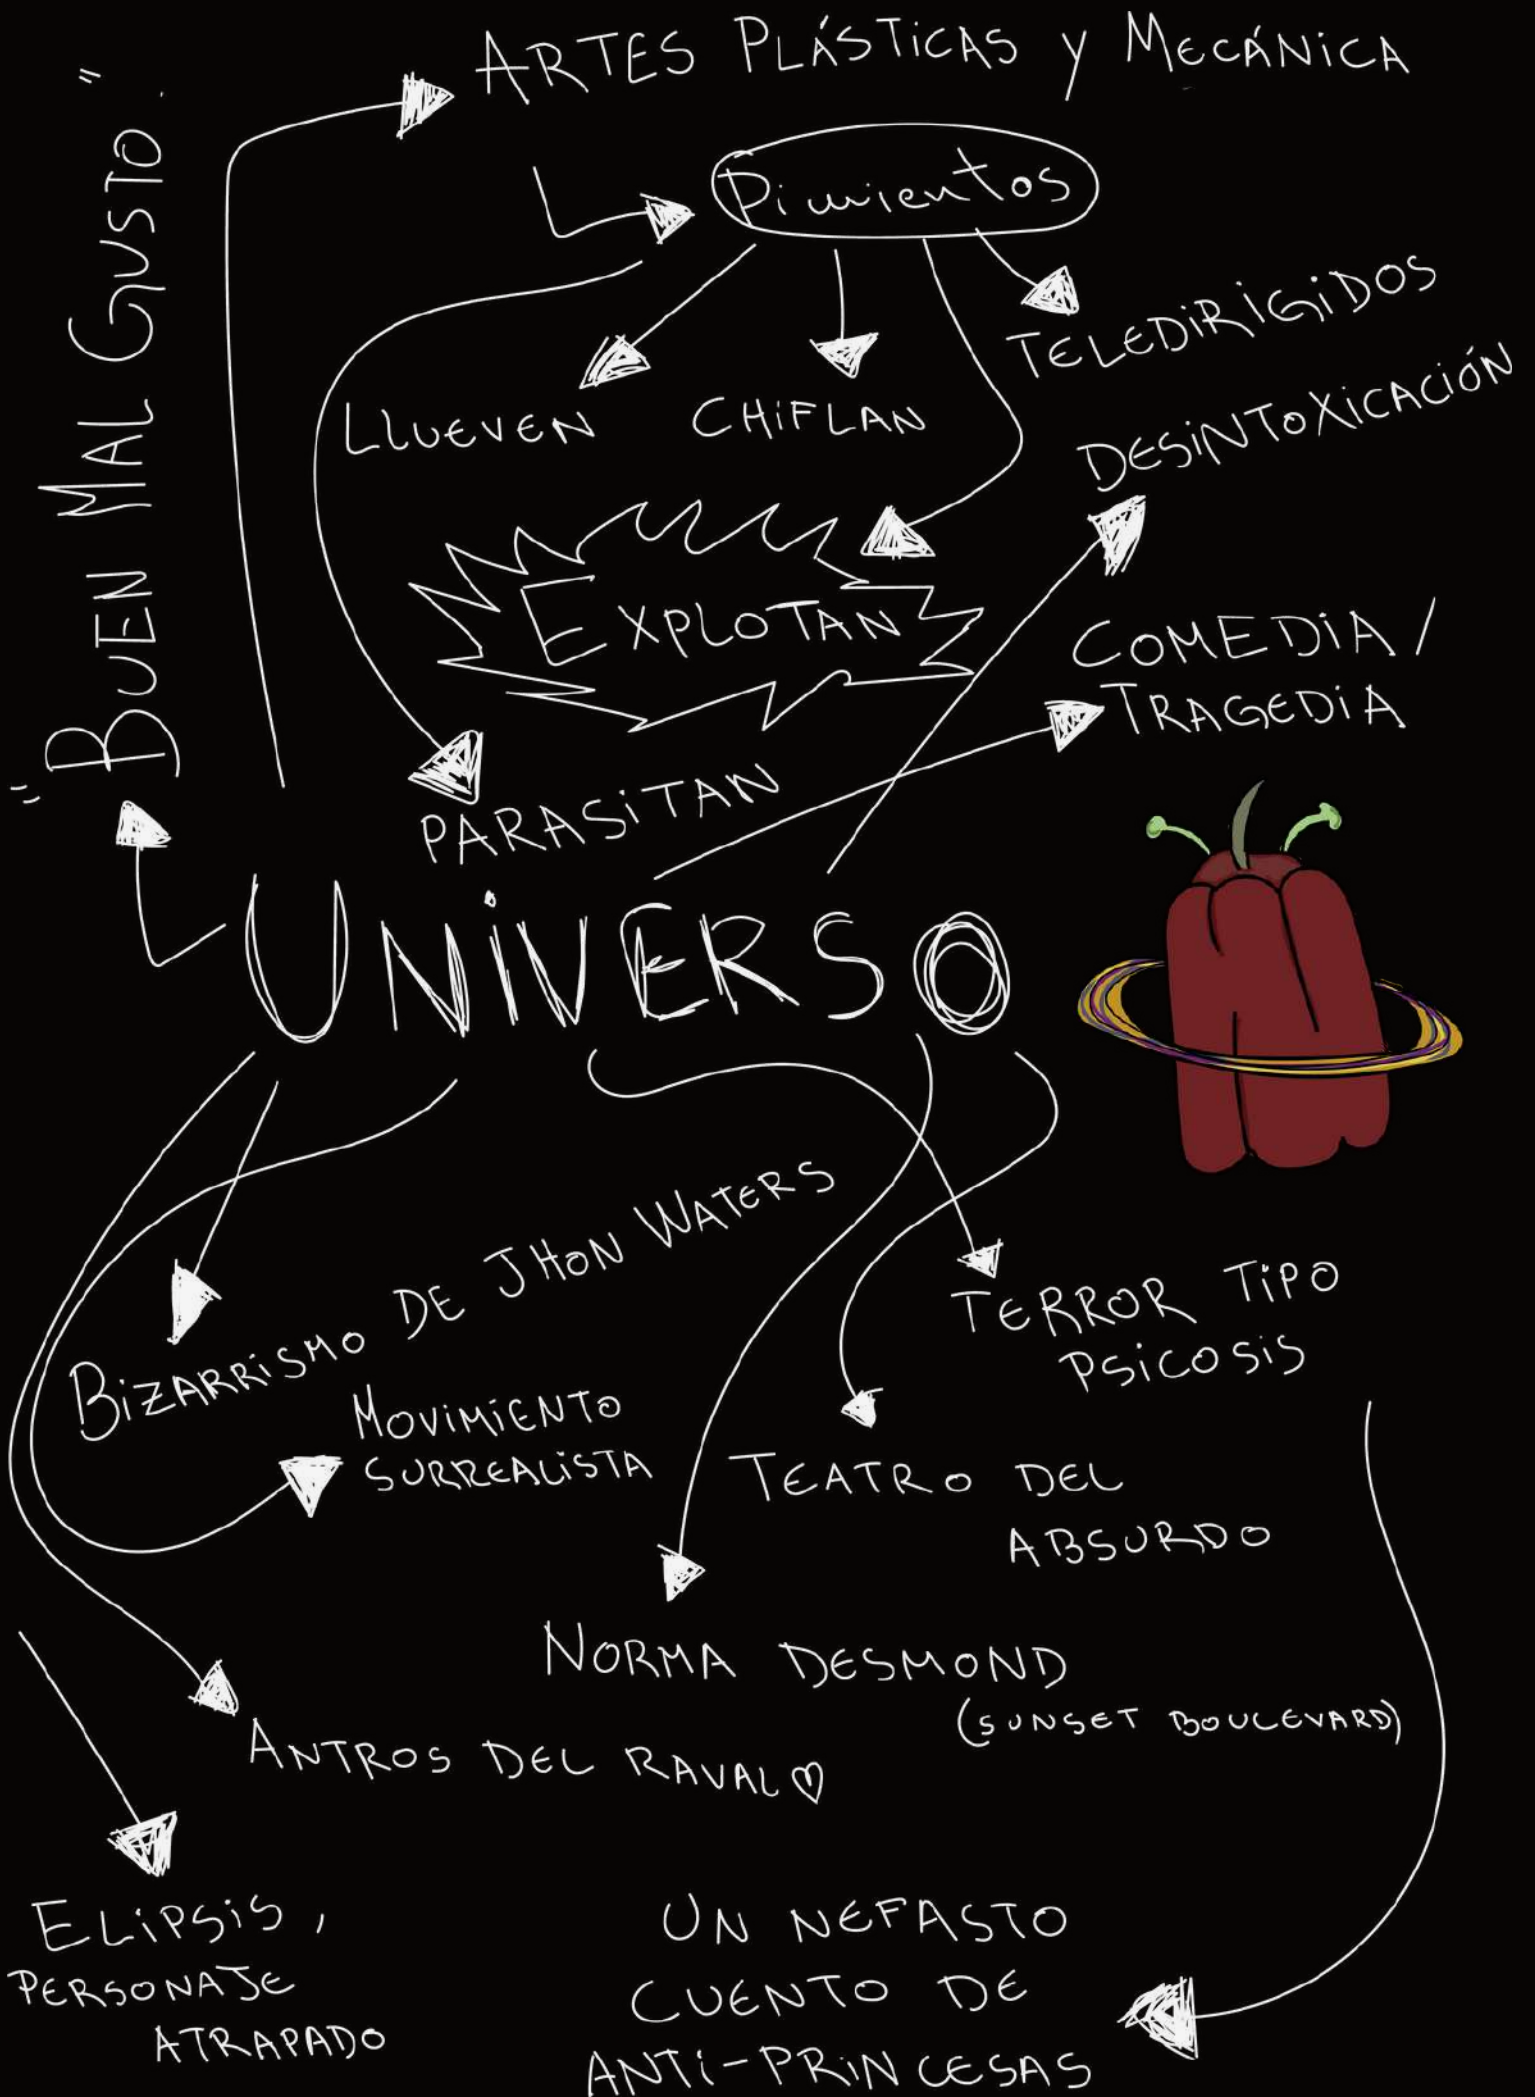 ARTES PLÁSTICAS Y MECÁNICA
"BUEN MAL GUSTO."
Pimientos
TELEDIRIGIDOS
LLUEVEN
CHIFLAN
DESINTOXICACIÓN
EXPLOTAN
COMEDIA /
TRAGEDIA
PARASITAN
UNIVERSO
BIZARRISMO DE JHON WATERS
TERROR TIPO
PSICOSIS
MOVIMIENTO
SURREALISTA
TEATRO DEL
ABSURDO
NORMA DESMOND
(SUNSET BOULEVARD)
ANTROS DEL RAVAL ♡
ELIPSIS,
PERSONAJE
ATRAPADO
UN NEFASTO
CUENTO DE
ANTI-PRINCESAS